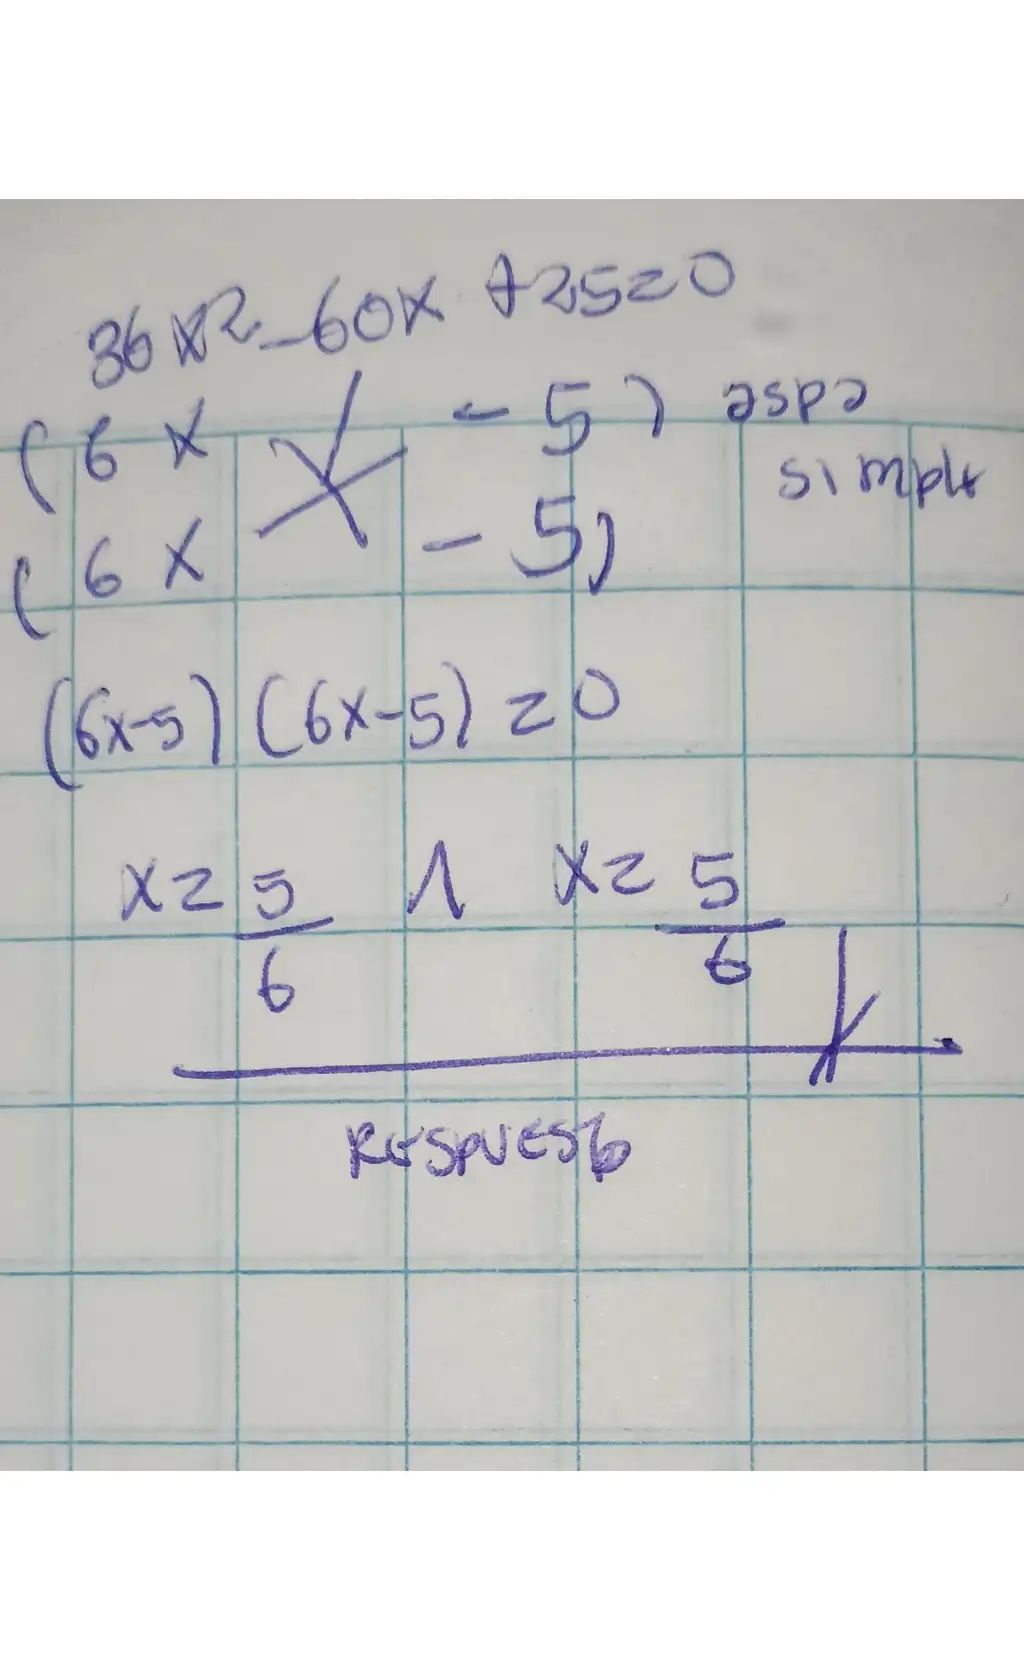 36x² - 60x + 25 = 0
(6x - 5) aspa
(6x - 5) simple
(6x-5) (6x-5) = 0
x = 5/6 ∧ x = 5/6
Respuesta